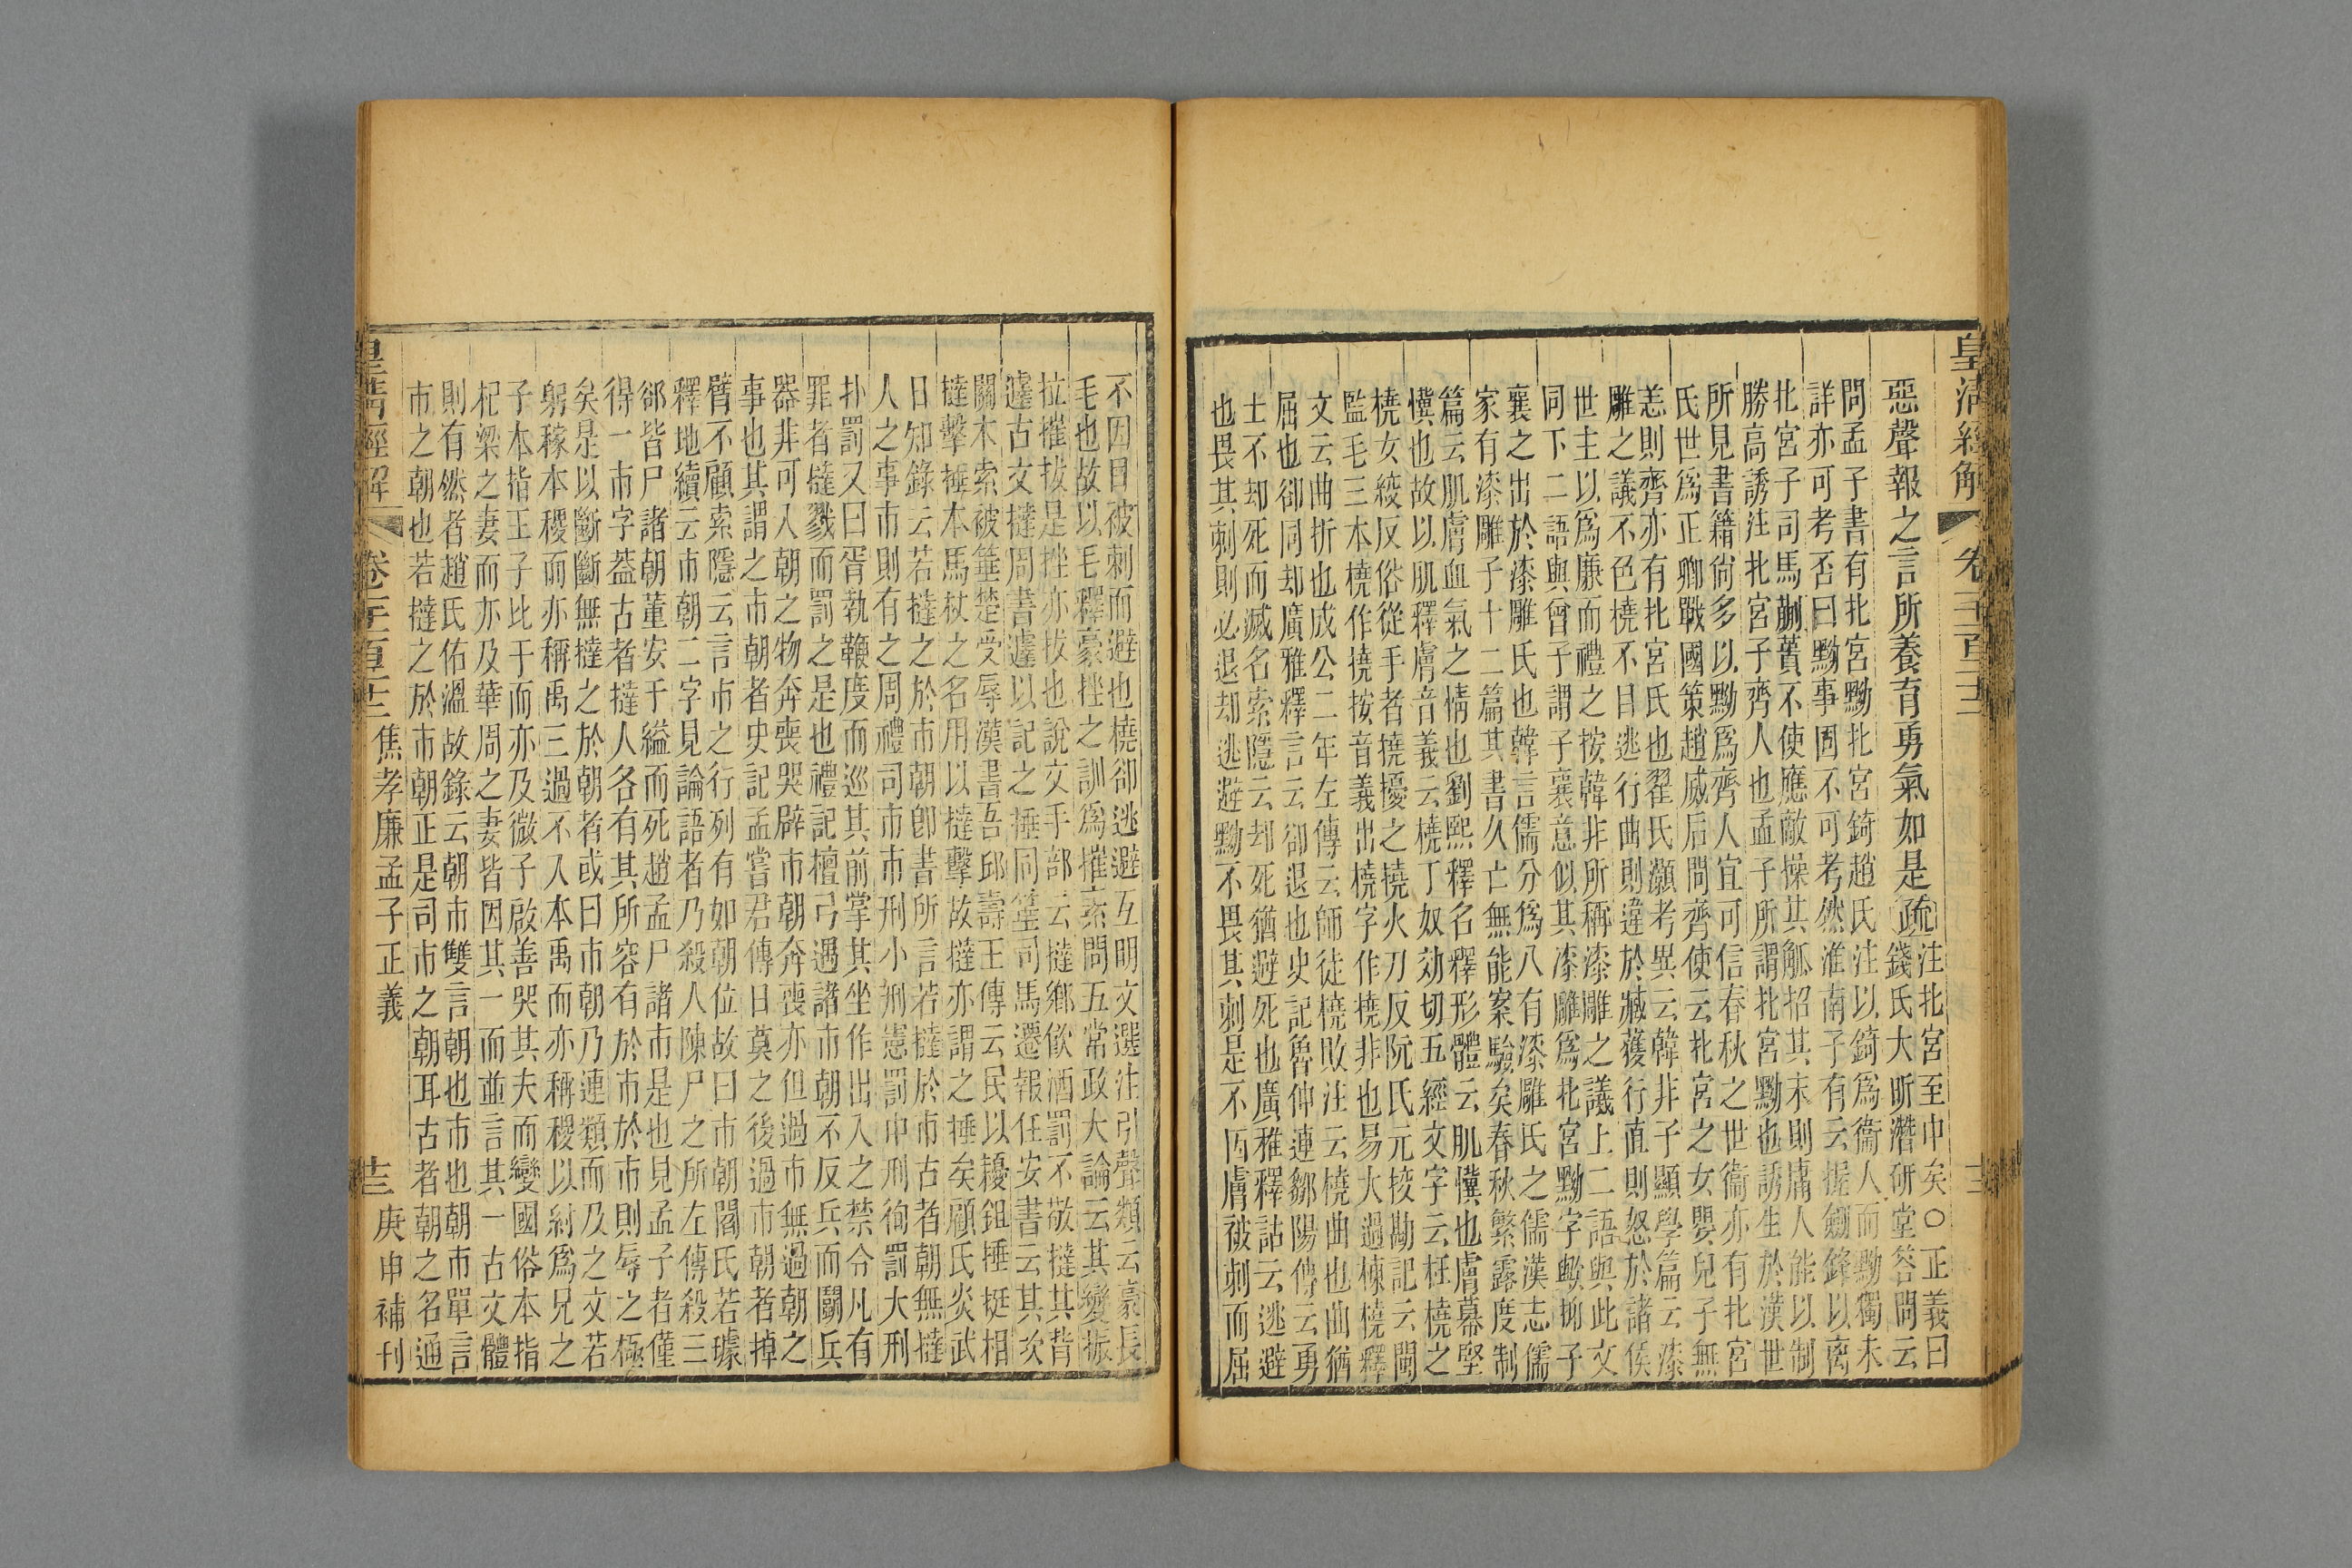 皇清經解
惡聲報之言所養育勇氣如是疏
注北宮至中矣○正義曰
錢氏大昕潛研堂答問云
問孟子書有北宮黝北宮錡趙氏注以錡爲衞人而黝獨未
詳亦可考否曰黝事固不可考然淮南子有云握劒鋒以离
北宮子司馬蒯蕢不使應敵操其觚招其末則庸人能以制
勝高誘注北宮子齊人也孟子所謂北宮黝也誘生於漢世
所見書籍尙多以黝爲齊人宜可信春秋之世衞亦有北宮
氏世爲正卿戰國策趙威后問齊使云北宮之女嬰兒子無
恙則齊亦有北宮氏也翟氏灝考異云韓非子顯學篇云漆
雕之議不色橈不目逃行曲則違於臧獲行直則怒於諸侯
世主以爲廉而禮之按韓非所稱漆雕之議上二語與此文
同下二語與曾子謂子襄意似其漆雕爲北宮黝字歟抑子
襄之出於漆雕氏也韓言儒分爲八有漆雕氏之儒漢志儒
家有漆雕子十二篇其書久亡無能案驗矣春秋繁露度制
篇云肌膚血氣之情也劉熙釋名釋形體云肌懻也膚幕堅
懻也故以肌釋膚音義云橈丁奴効切五經文字云枉橈之
橈女絞反俗從手者撓擾之撓火刀反阮氏元挍勘記云閩
監毛三本橈作撓按音義出橈字作撓非也易大過棟橈釋
文云曲折也成公二年左傳云師徒橈敗注云橈曲也曲猶
屈也卻同却廣雅釋言云卻退也史記魯仲連鄒陽傳云勇
士不却死而滅名索隱云却死猶避死也廣雅釋詁云逃避
也畏其刺則必退却逃避黝不畏其刺是不因膚被刺而屈
不因目被刺而避也橈卻逃避互明文選注引聲類云豪長
毛也故以毛釋豪挫之訓爲摧素問五常政大論云其變振
拉摧拔是挫亦拔也說文手部云撻鄉飮酒罰不敬撻其背
遽古文撻周書遽以記之捶同箠司馬遷報任安書云其次
關木索被箠楚受辱漢書吾邱壽王傳云民以耰鉏捶梃相
撻擊捶本馬杖之名用以撻擊故撻亦謂之捶矣顧氏炎武
日知錄云若撻之於市朝卽書所言若撻於市古者朝無撻
人之事市則有之周禮司市市刑小刑憲罰中刑徇罰大刑
扑罰又曰胥執鞭度而巡其前掌其坐作出入之禁令凡有
罪者撻戮而罰之是也禮記檀弓遇諸市朝不反兵而鬭兵
器非可入朝之物奔喪哭辟市朝奔喪亦但過市無過朝之
事也其謂之市朝者史記孟嘗君傳日莫之後過市朝者掉
臂不顧索隱云言市之行列有如朝位故曰市朝閻氏若璩
釋地續云市朝二字見論語者乃殺人陳尸之所左傳殺三
郤皆尸諸朝董安于縊而死趙孟尸諸市是也見孟子者僅
得一市字葢古者撻人各有其所容有於市於市則辱之極
矣是以斷斷無撻之於朝者或曰市朝乃連類而及之文若
躬稼本稷而亦稱禹三過不入本禹而亦稱稷以紂爲兄之
子本指王子比干而亦及微子啟善哭其夫而變國俗本指
杞梁之妻而亦及華周之妻皆因其一而並言其一古文體
則有然者趙氏佑溫故錄云朝市雙言朝也市也朝市單言
市之朝也若撻之於市朝正是司市之朝耳古者朝之名通
焦孝廉孟子正義
庚申補刊